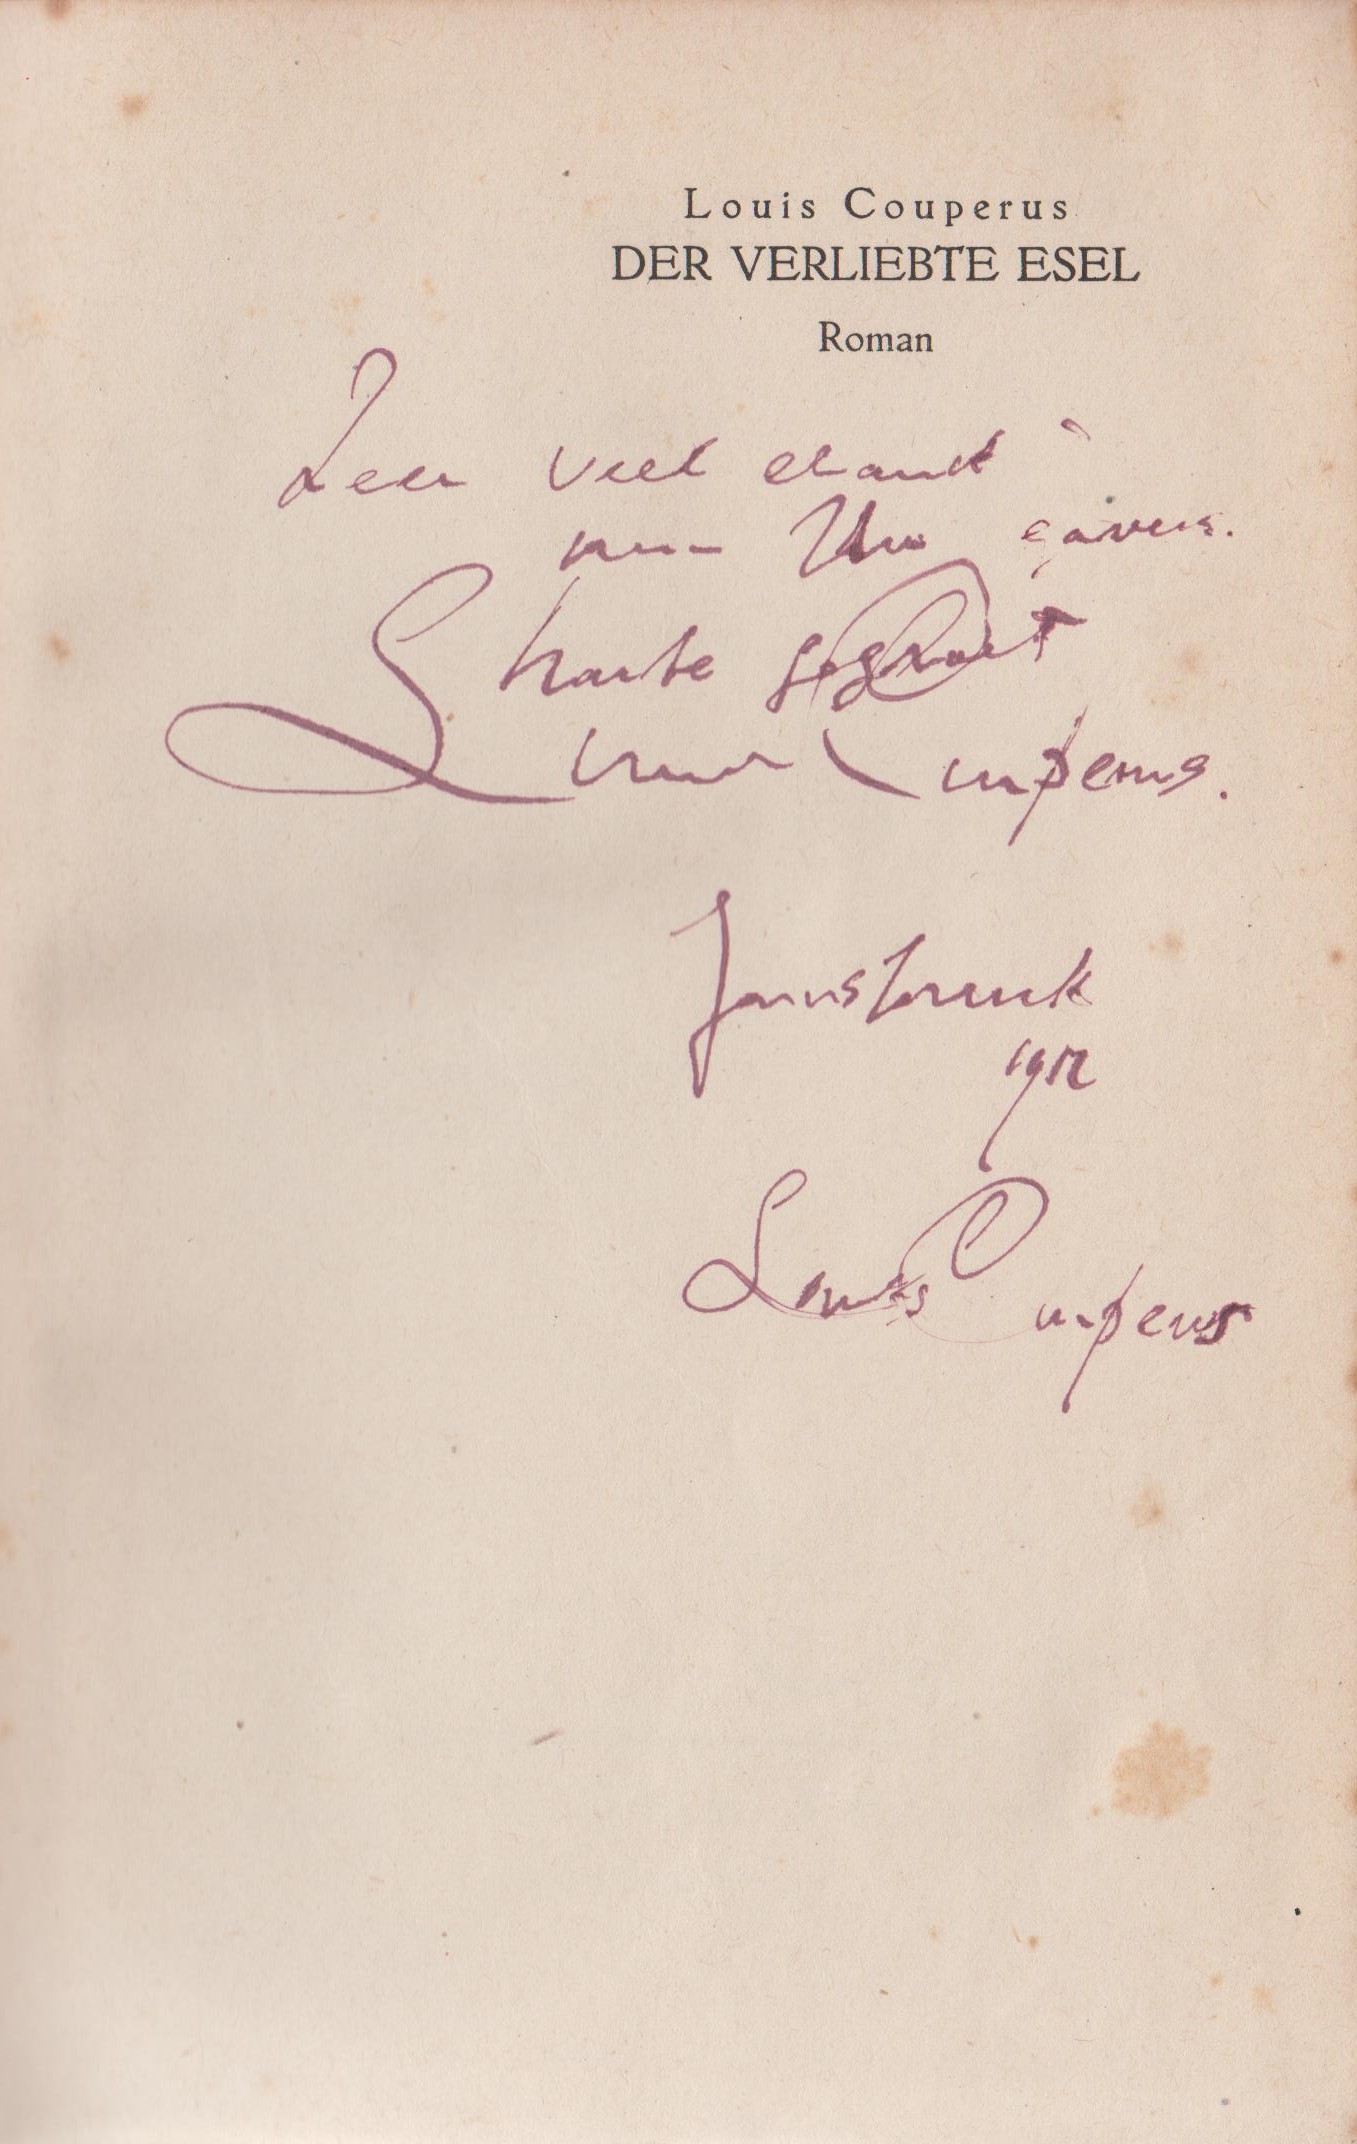 Louis Couperus
DER VERLIEBTE ESEL
Roman
Zeer veel dank
voor Uw gaven.
harte gegroet
Louis Couperus.
Innsbruck
Louis Couperus